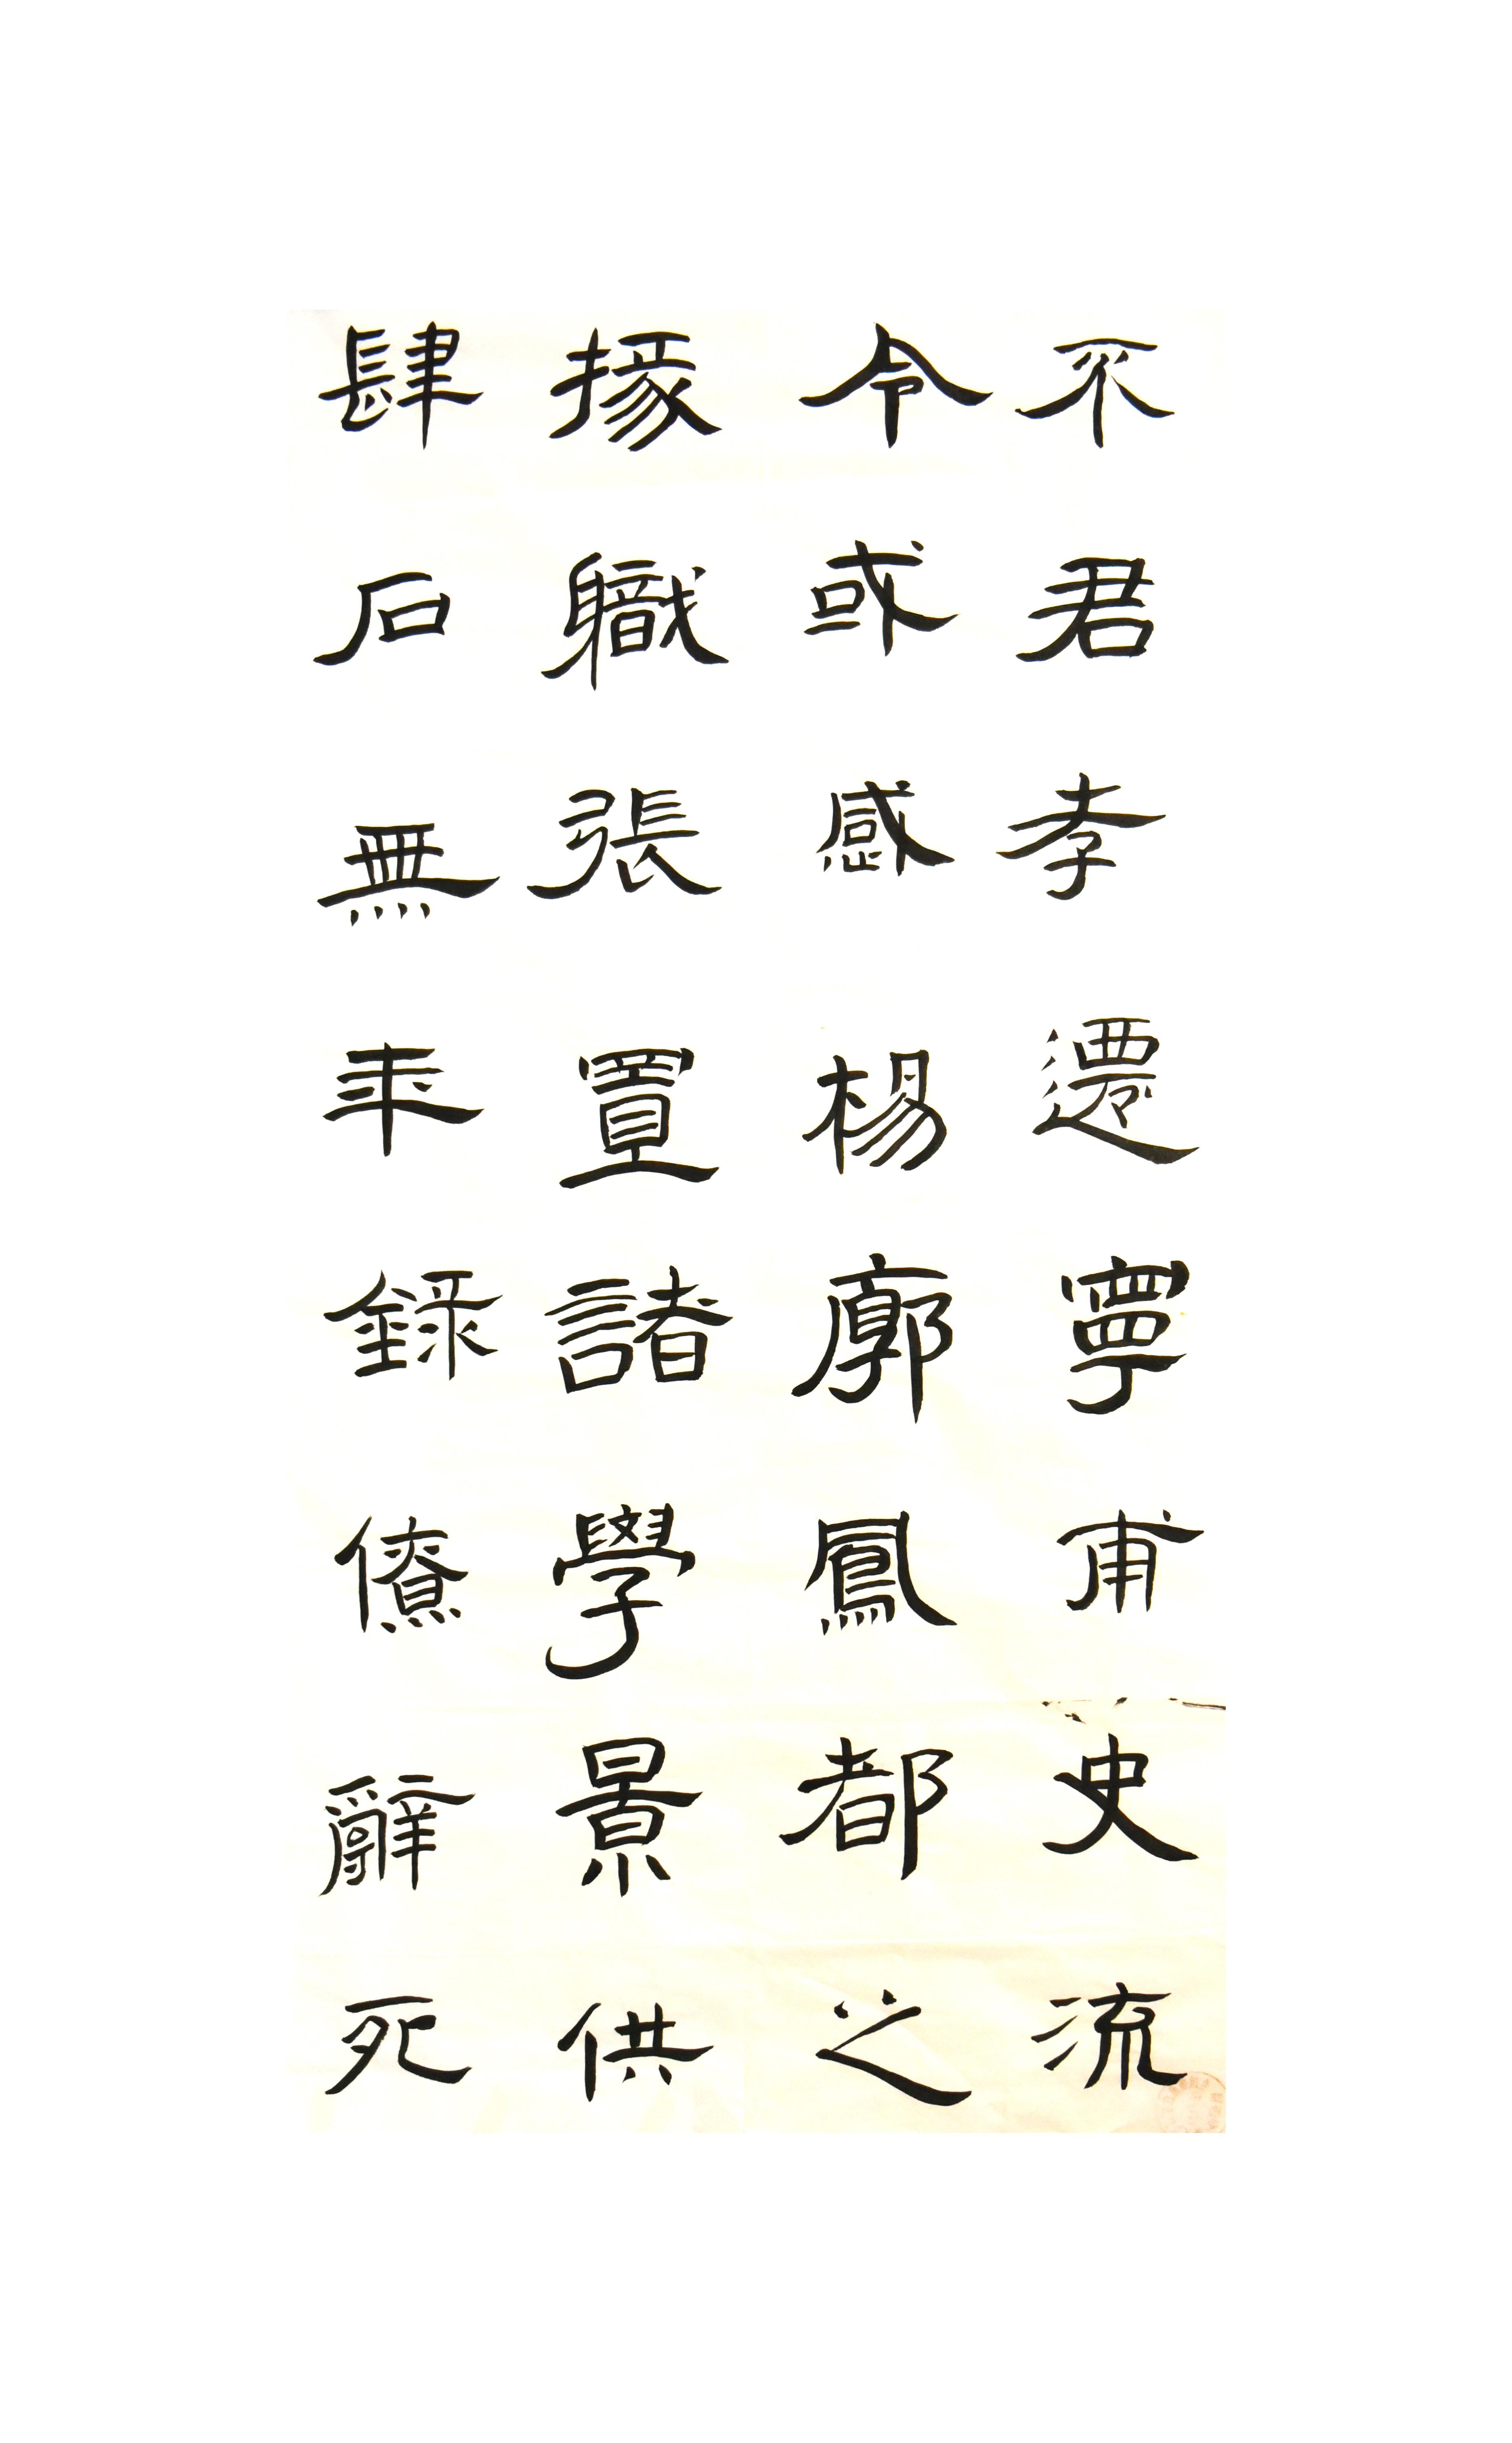 不君孝遷寧甫史流
令或感楊廓鳳都之
掾職張置諸學景供
肆石無年錄僚辭死